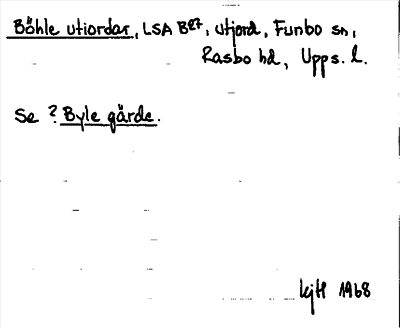 Böhle utiordar, LSA B27, utjord, Funbo sn,
Rasbo hd, Upps. l.
Se ? Byle gärde.
1968